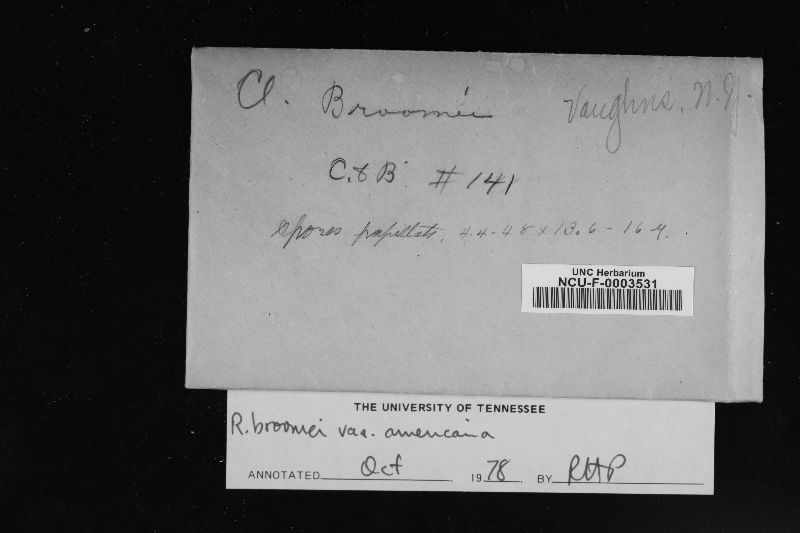 Cl. Broomei Vaughns, N.Y.
C. & B. # 141
spores papillate, 4.4-4.8 x 13.6-16 µ.
UNC Herbarium
NCU-F-0003531
THE UNIVERSITY OF TENNESSEE
R. broomei var. americana
ANNOTATED Oct 1978. BY RHP